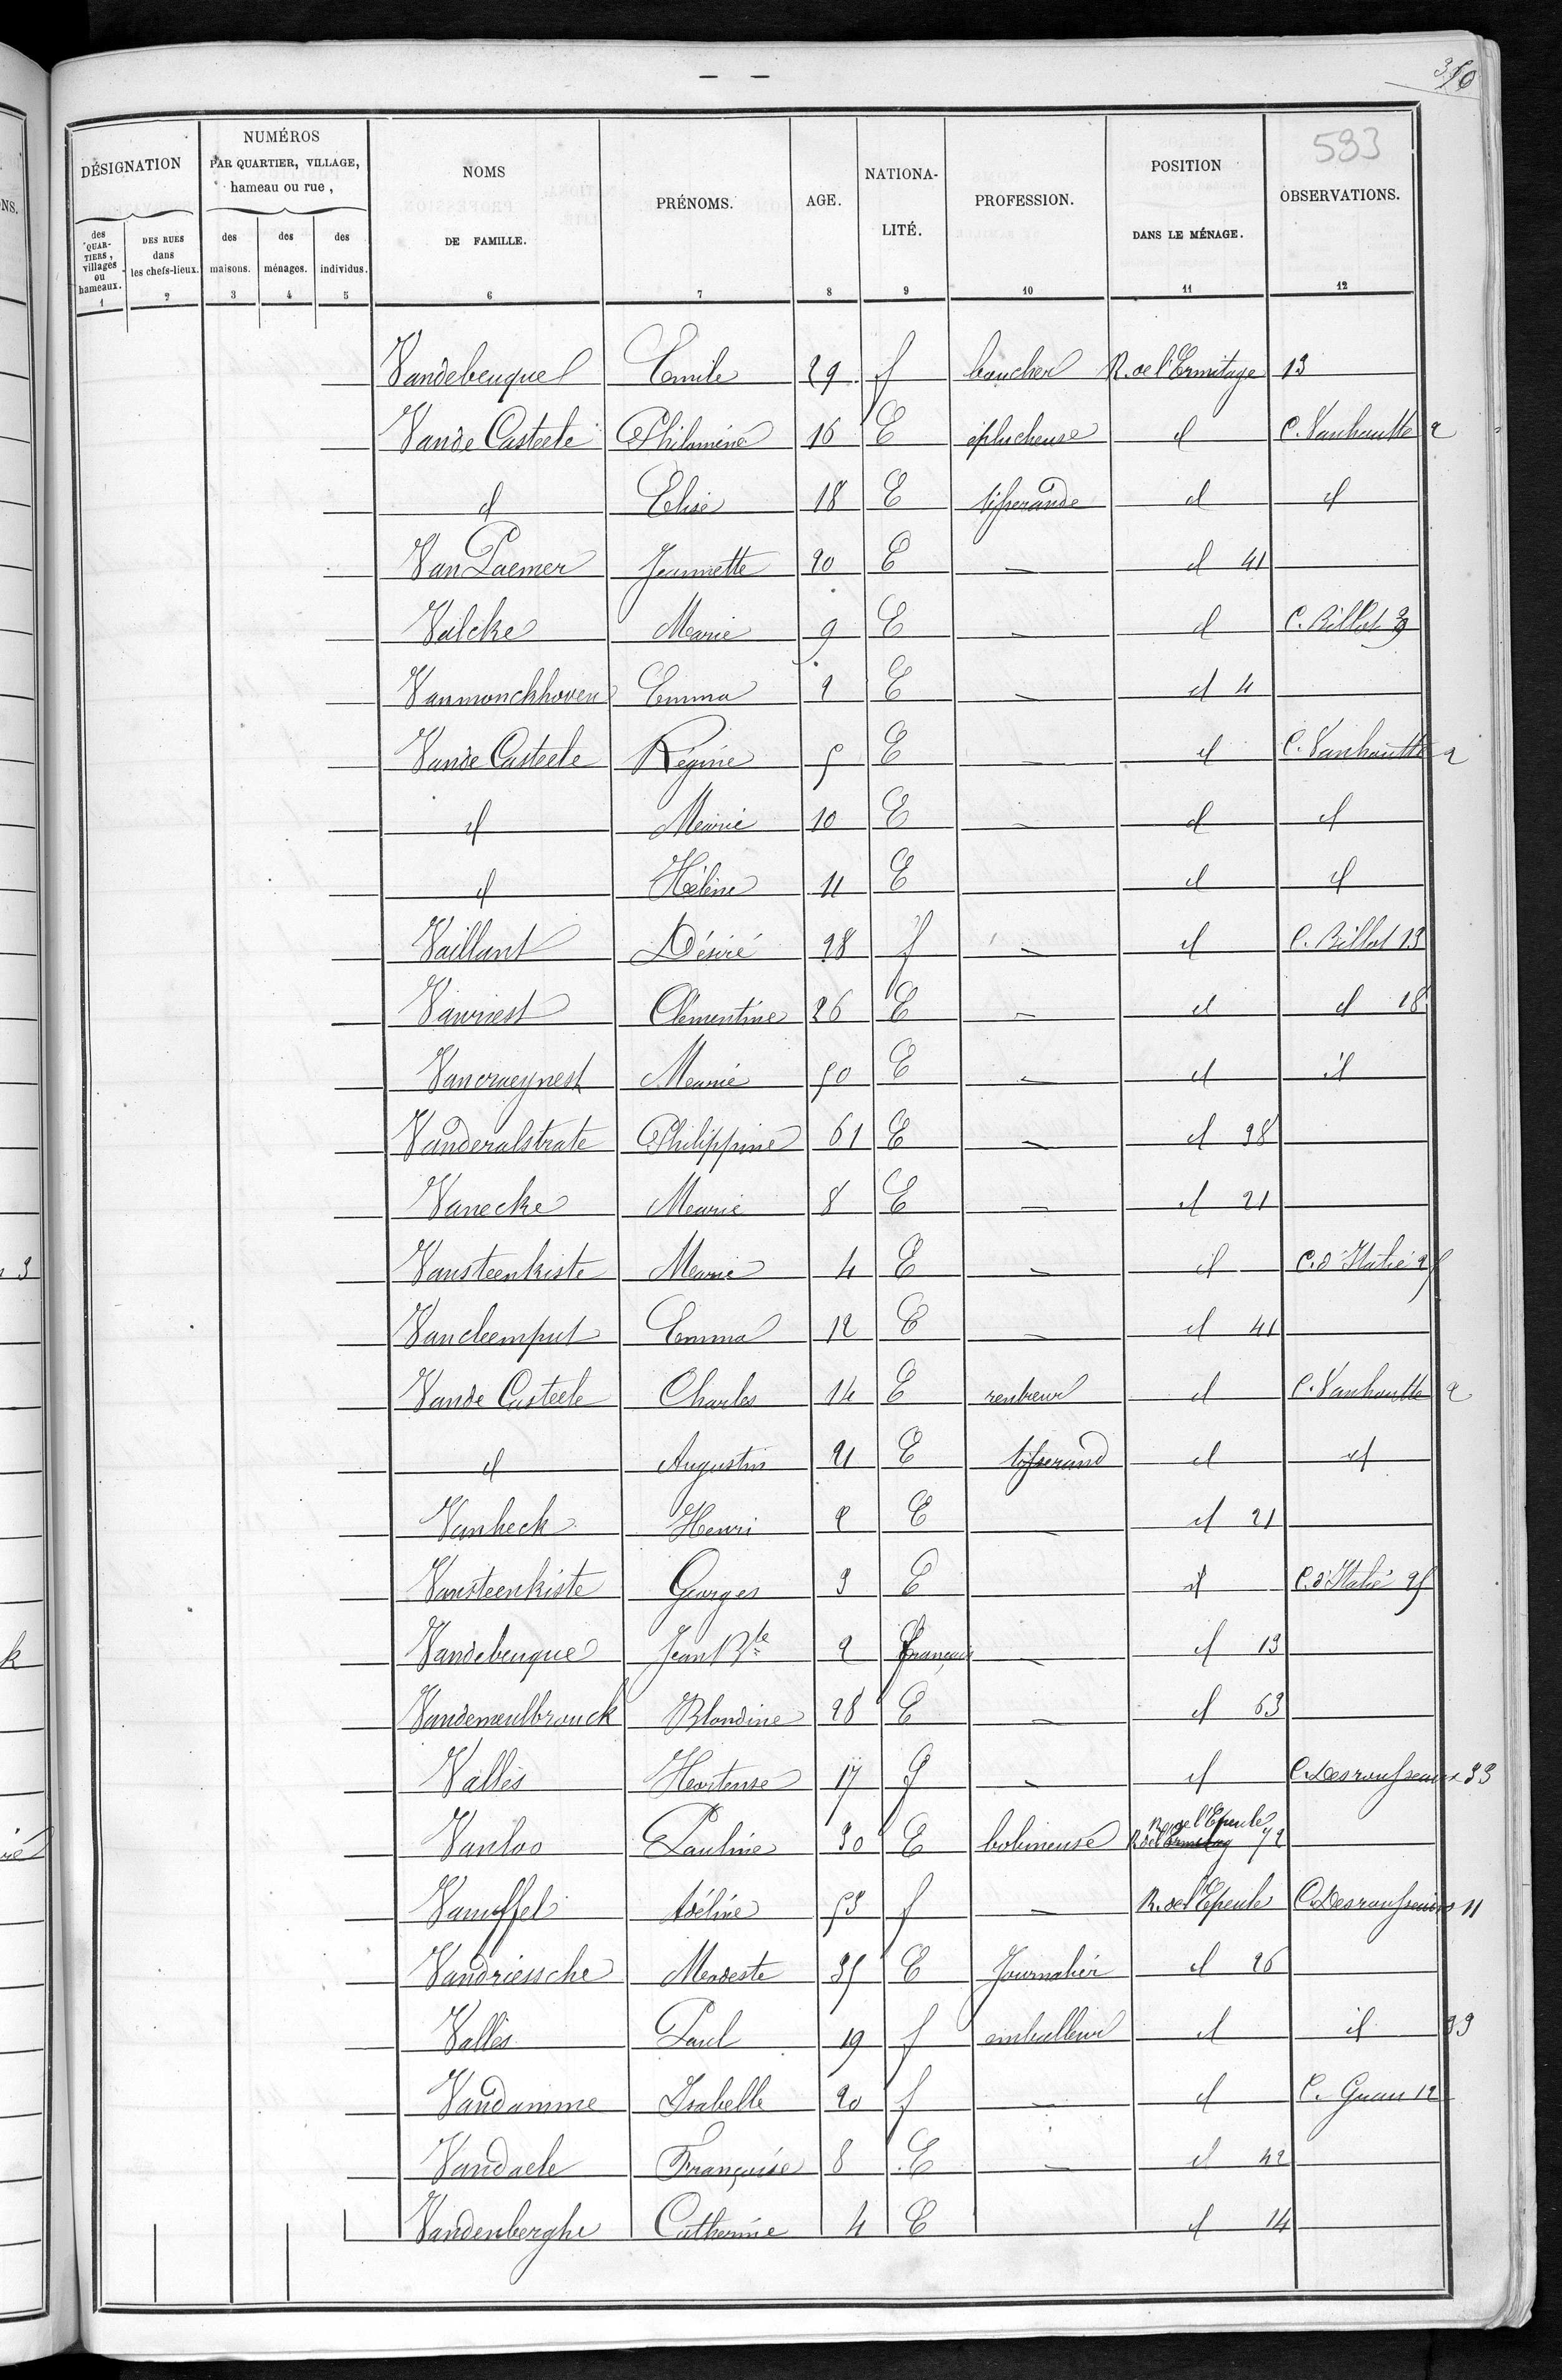 310
583
DÉSIGNATION
NUMÉROS
PAR QUARTIER, VILLAGE,
hameau ou rue,
NOMS
DE FAMILLE.
PRÉNOMS.
AGE.
NATIONA-
LITÉ.
PROFESSION.
POSITION
DANS LE MÉNAGE.
OBSERVATIONS.
des QUAR-TIERS, villages ou hameaux.
DES RUES dans les chefs-lieux.
des maisons.
des ménages.
des individus.
1 2 3 4 5 6 7 8 9 10 11 12
Vandebeuque Emile 29 f boucher R. de l'Ermitage 13
Vande Casteele Philomène 16 E éplucheuse d C. Vanhoutte 2
d Elise 18 E tisserande d d
Van Paemer Jeannette 20 E — d 41
Valcke Marie 9 E — d C. Billot
Vanmonckhoven Emma 2 E — d 4
Vande Casteele Régine 5 E — d C. Vanhoutte 2
d Marie 10 E — d d
d Hélène 11 E d d
Vaillant Désiré 28 f — d C. Billot 13
Vanriest Clémentine 26 E — d d 18
Vancraeynest Marie 50 E — d d
Vanderalstrate Philippine 61 E — d 98
Vanecke Marie 8 E — d 21
Vansteenkiste Marie 4 E — d C. d'Italie 25
Vancleemput Emma 12 E — d 41
Vande Casteele Charles 14 E rentreur d C. Vanhoutte 2
d Augustin 21 E tisserand d d
Vanheck Henri 2 E — d 21
Vansteenkiste Georges 3 E d C. d'Italie 25
Vandebeuque Jean Bte 2 français — d 13
Vandemeulbrouck Blondine 28 E — d 63
Vallès Hortense 17 f — d C. Desrousseaux 33
Vanloo Pauline 30 E bobineuse R. de l'Epeule 72
Vanuffel Adéline 53 f — R. de l'Epeule C. Desrousseaux 11
Vandriessche Modeste 35 E Journalier d 26
Vallès Paul 19 f emballeur d d 33
Vandamme Isabelle 20 f — d C. 12
Vandaele Françoise 8 E — d 42
Vandenberghe Catherine 4 E d 14